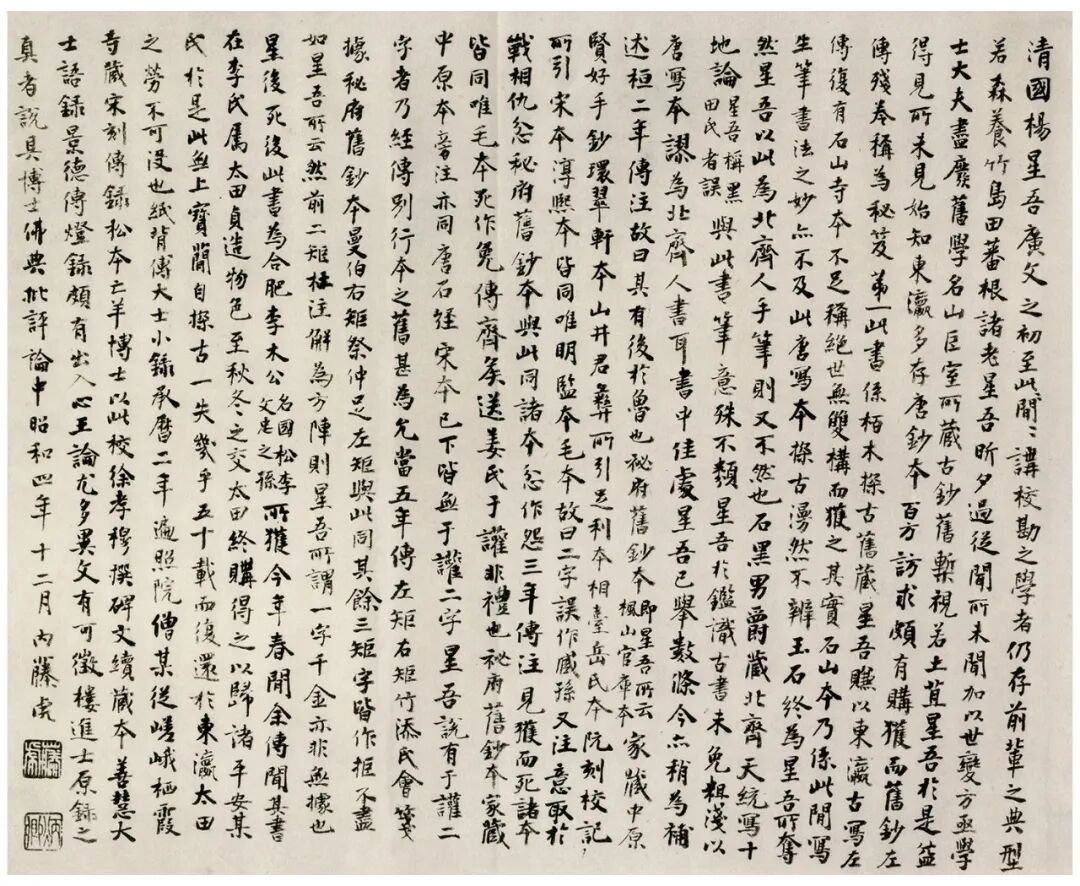 清國楊星吾廣文之初至此閒閒講校勘之學者仍存前輩之典型
若森養竹島田蕃根諸老星吾昕夕過從聞所未聞加以世變方亟學
士大夫盡廢舊學名山巨室所藏古鈔舊槧視若土苴星吾於是益
得見所未見始知東瀛多存唐鈔本百方訪求頗有購獲而舊鈔左
傳殘卷稱為秘笈第一此書係栢木探古舊藏星吾賺以東瀛古寫左
傳復有石山寺本不足稱絕世無雙構而獲之其實石山本乃係此閒寫
生筆書法之妙亦不及此唐寫本探古漫然不辨玉石終為星吾所奪
然星吾以此為北齊人手筆則又不然也石黑男爵藏北齊天統寫十
地論星吾稱黑田氏者誤與此書筆意殊不類星吾於鑑識古書未免粗淺以
唐寫本謬為北齊人書耳書中佳處星吾已舉數滌今亦稍為補
述桓二年傳注故曰其有後於魯也秘府舊鈔本即星吾所云楓山官庫本家藏中原
賢好手鈔環翠軒本山井君彝所引足利本相臺岳氏本阮刻校記
所引宋本淳熙本皆同唯明監本毛本故曰二字誤作臧孫又注意取於
戰相仇忿秘府舊鈔本與此同諸本忿作怨三年傳注見獲而死諸本
皆同唯毛本死作免傳齊矦送姜氏于讙非禮也秘府舊鈔本家藏
中原本旁注亦同唐石經宋本已下皆無于讙二字星吾說有于讙二
字者乃經傳別行本之舊甚為允當五年傳左矩右矩竹添氏會箋
據秘府舊鈔本曼伯右矩祭仲足左矩與此同其餘三矩字皆作拒不盡
如星吾所云然前二矩杜注解為方陣則星吾所謂一字千金亦非無據也
星後死後此書為合肥李木公名國松李文忠之孫所獲今年春聞余傳聞其書
在李氏屬太田貞造物色至秋冬之交太田終購得之以歸諸平安某
氏於是此無上寶蘭自探古一失幾乎五十載而復還於東瀛太田
之勞不可沒也紙背傅大士小錄承曆二年遍照院僧某從嵯峨栖霞
寺藏宋刻傳錄松本亡羊博士以此校徐孝穆撰碑文續藏本善慧大
士語錄景德傳燈錄頗有出入心王論尤多異文有可徵樓進士原錄之
真者說具博士佛典批評論中昭和四年十二月內藤虎
藤虎
炳卿